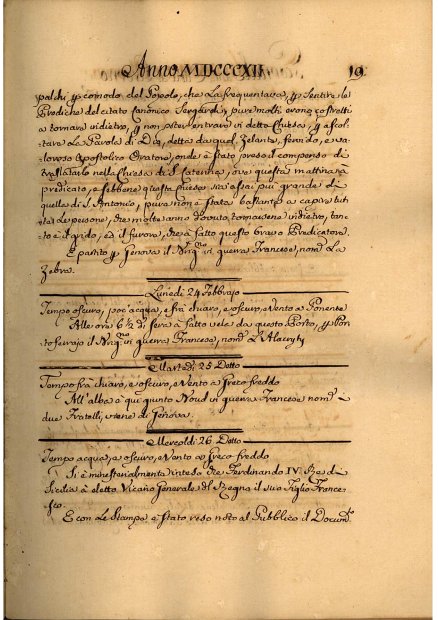 Anno MDCCCXII 19
palchi p comodo del Popolo, che La frequentava, p sentire le
Prediche del citato Canonico Sergardi, e pure molti erono costretti
a tornare indietro, p non poter entrare in detta Chiesa, p ascol-
tare La Parola di Dio, detta da quel Zelante, fervido, e va-
loroso Apostolico Oratore, onde è stato preso il compenso di
traslatarlo nella Chiesa di S. Caterina, ove questa mattina à
predicato, e sebbene questa Chiesa sia assai più grande di
quella di S. Antonio, pure non è stata bastante a capire tut-
te Le persone, che molte anno dovuto tornarsene indietro, tan-
to è il grido, ed il furore, che à fatto questo bravo Predicatore.
E partito p Genova il in guerra Francese, nom. La
Zebra.
Lunedi 24 Febbrajo
Tempo oscuro, poc' acqua, e frà chiaro, e oscuro, e vento a Ponente
Alle ore 6 2 di sera à fatto vela da questo Porto, p Por-
toferrajo il in guerra Francese, nom. L'Alacrity
Martedi 25 Detto
Tempo frà chiaro, e oscuro, e vento a Greco freddo
All'alba è qui giunto in guerra Francese nom. i
due Fratelli, viene di Genova.
Mercoldi 26 Detto
Tempo acqua, e oscuro, e vento a Greco freddo
Si è ministerialmente inteso che Ferdinando IV. Re di
Sicilia à eletto Vicario Generale del Regno il suo Figlio France-
sco.
E con Le Stampe è stato reso noto al Pubblico il Docum.